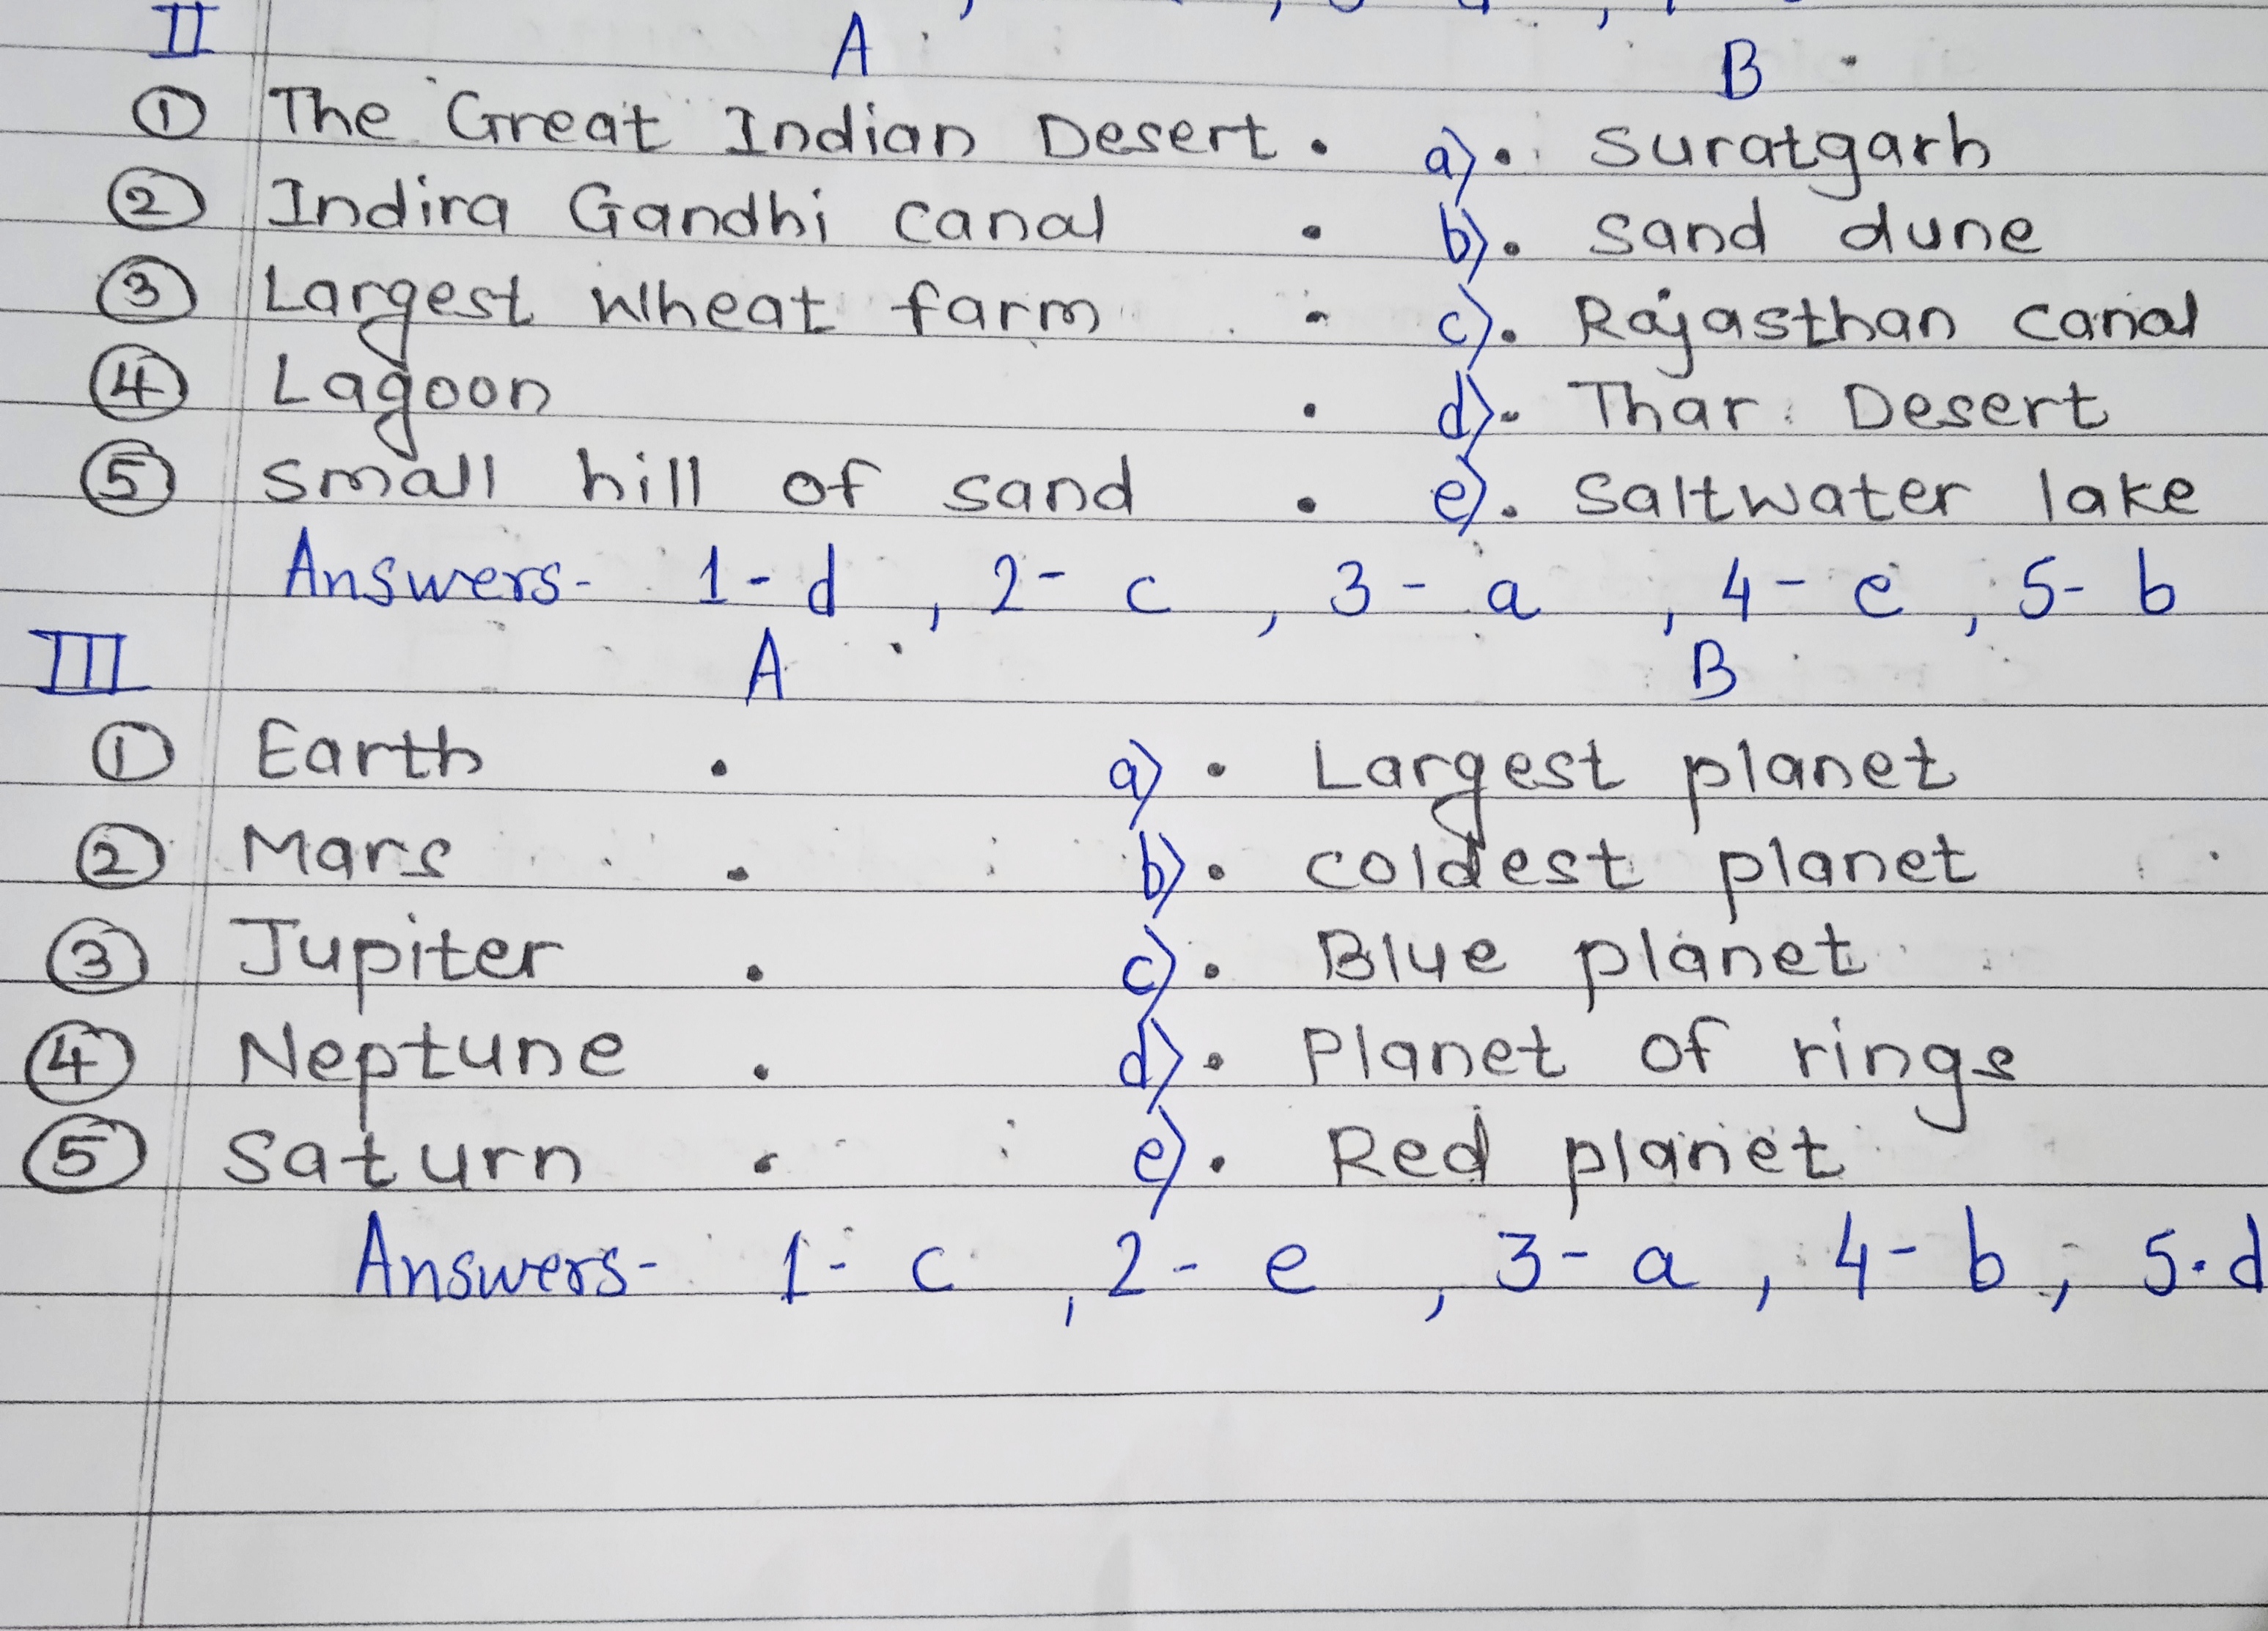 II A B
① The Great Indian Desert . a) . Suratgarh
② Indira Gandhi canal . b) . Sand dune
③ Largest wheat farm . c) . Rajasthan canal
④ Lagoon . d) . Thar Desert
⑤ Small hill of sand . e) . Saltwater lake
Answers- 1-d , 2-c , 3-a , 4-e , 5-b
III A B
① Earth . a) . Largest planet
② Mars . b) . coldest planet
③ Jupiter . c) . Blue planet
④ Neptune . d) . Planet of rings
⑤ Saturn . e) . Red planet
Answers- 1-c , 2-e , 3-a , 4-b , 5.d